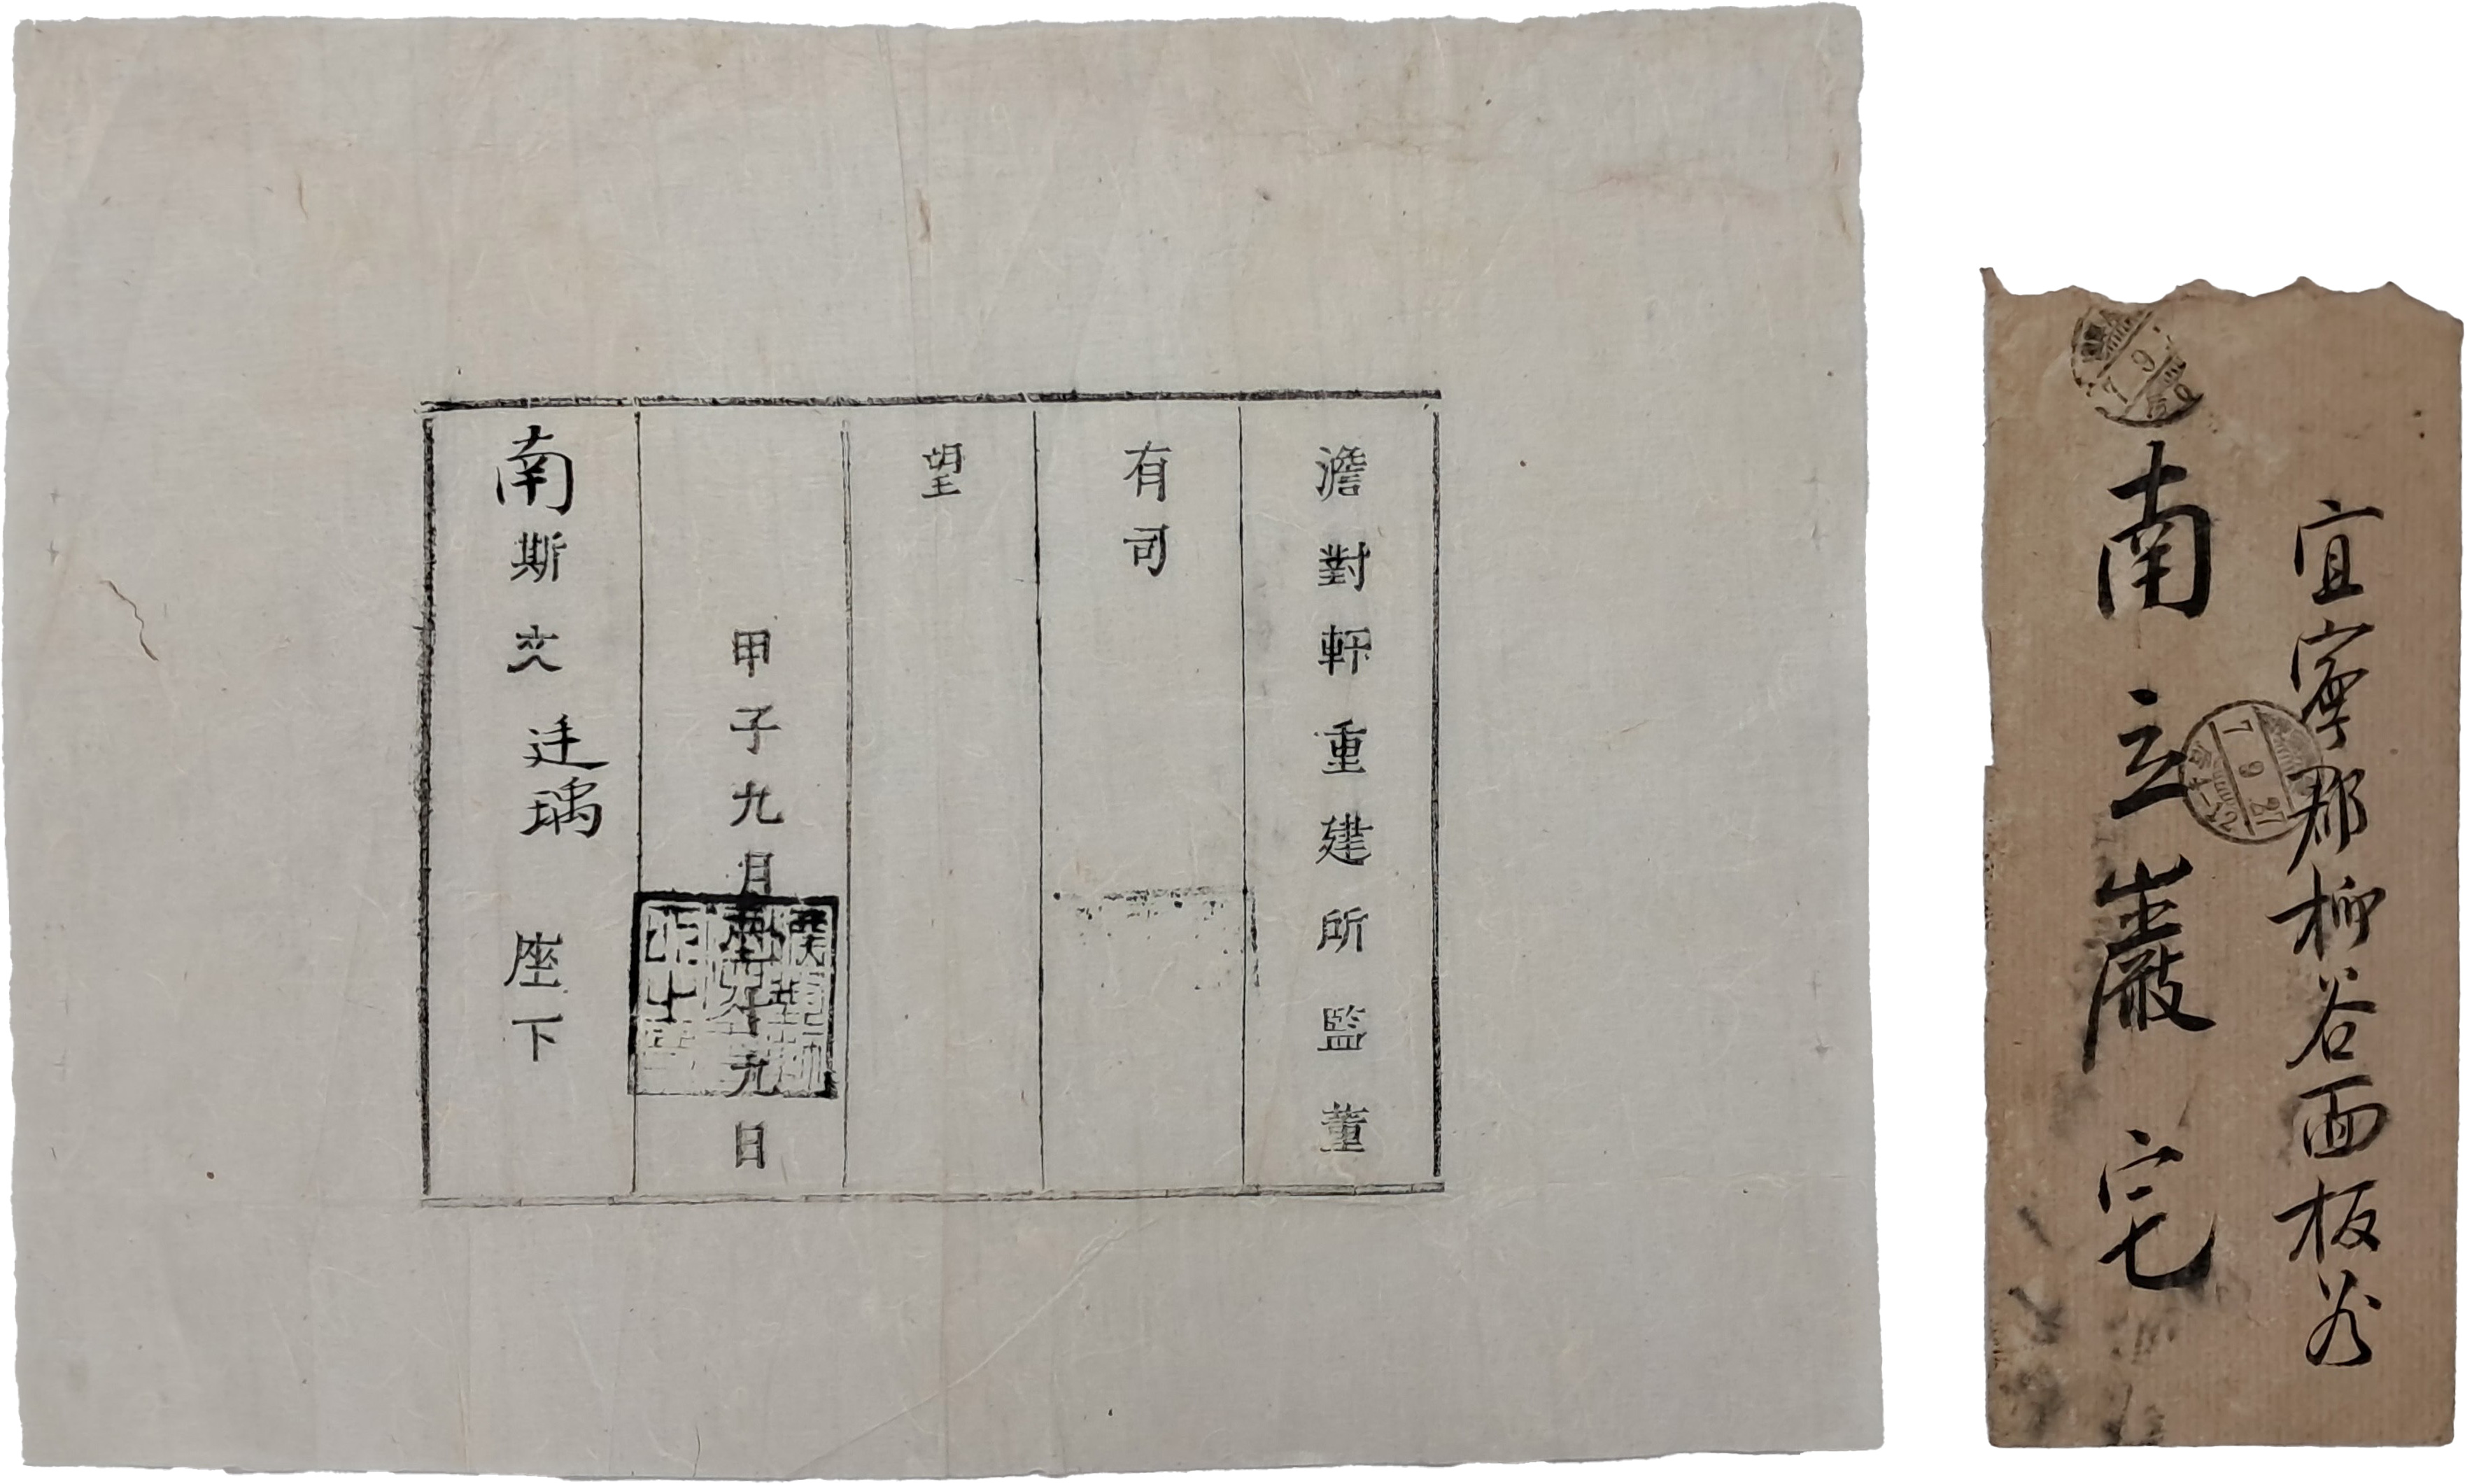 澹對軒重建所監董
有司
望
甲子九月 九日
南斯文廷瑀 座下
宜寧郡柳谷面板谷
南立巖宅